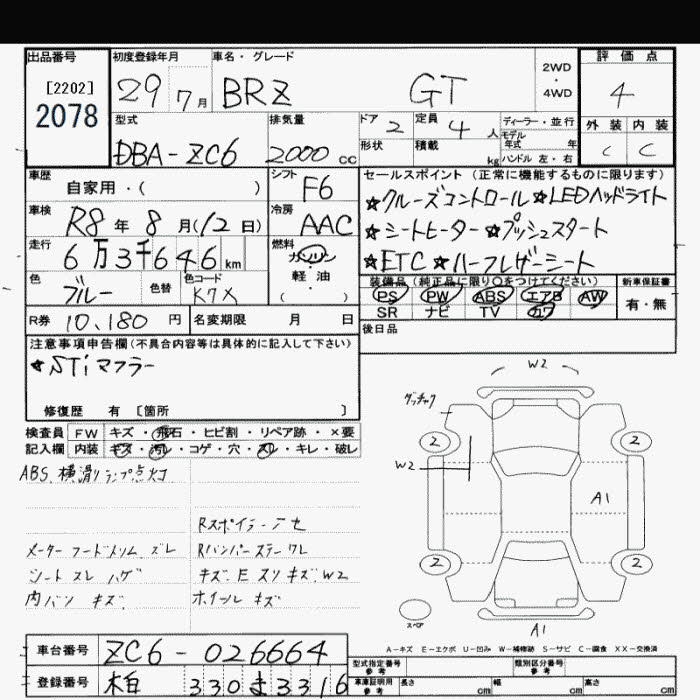 出品番号 初度登録年月 車名・グレード 2WD・4WD 評価点
[2202]
2078 29 7月 BRZ GT 4
型式 排気量 ドア 2 定員 4人 ディーラー・並行 外装 内装
DBA-ZC6 2000cc 形状 積載 kg モデル年式 年 C C
ハンドル 左・右
車歴 自家用・( ) シフト F6 セールスポイント(正常に機能するものに限ります)
車検 R8年8月(12日) 冷房 AAC ☆クルーズコントロール ☆LEDヘッドライト
走行 6万3千646km 燃料 ガソリン ☆シートヒーター ☆プッシュスタート
軽・油 ☆ETC ☆ハーフレザーシート
( )
色 ブルー 色替 色コード K7X 装備品(純正品に限り○をつけてください) 新車保証書
PS PW ABS エアB AW 有・無
SR ナビ TV カワ
R券 10,180円 名変期限 月 日 後日品
注意事項申告欄(不具合内容等は具体的に記入して下さい)
☆STiマフラー
修復歴 有 [箇所 ]
検査員 FW キズ・飛石・ヒビ割・リペア跡・×要
記入欄 内装 キズ・汚レ・コゲ・穴・スレ・キレ・破レ
ABS 横滑りランプ点灯
Rスポイラーアセ
メーターフードトリム ズレ Rバンパーステー ワレ
シート スレ ハゲ キズ.E スリキズ.W2
内バリ キズ ホイール キズ
W2
2 2
W2
A1
2 2
スペア
A1
A-キズ E-エクボ U-凹み W-補修跡 S-サビ C-腐食 XX-交換済
車台番号 ZC6-026664 型式指定番号 参考 類別区分番号 参考
登録番号 330 ま 3316 車庫証明用 参考 長さ cm 幅 cm 高さ cm